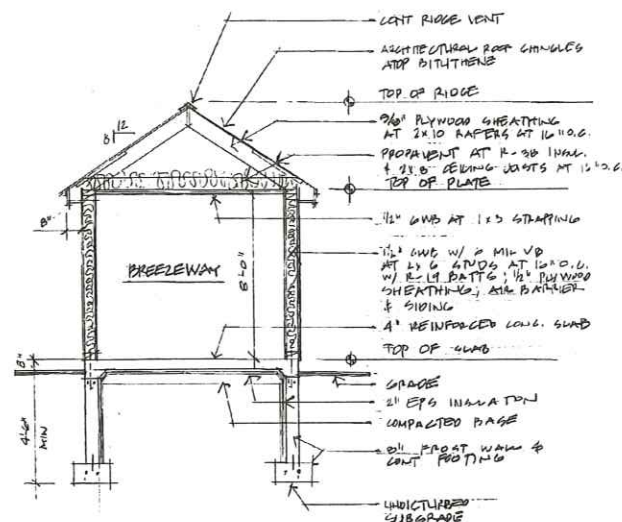 CONT RIDGE VENT
ARCHITECTURAL ROOF SHINGLES
ATOP BITUTHENE
TOP OF RIDGE
8 12
5/8" PLYWOOD SHEATHING
AT 2x10 RAFERS AT 16" O.C.
PROPAVENT AT R-38 INSUL.
& 2x8 CEILING JOISTS AT 16" O.C.
TOP OF PLATE
8"
1/2" GWB AT 1x3 STRAPPING
BREEZEWAY
8'-0"
1/2" GWB W/ 6 MIL VB
AT 2x6 STUDS AT 16" O.C.
W/ R-19 BATTS; 1/2" PLYWOOD
SHEATHING; AIR BARRIER
& SIDING
4" REINFORCED CONC. SLAB
TOP OF SLAB
8"
GRADE
2" EPS INSULATION
COMPACTED BASE
4'6"
MIN
8" FROST WALL &
CONT FOOTING
UNDISTURBED
SUBGRADE